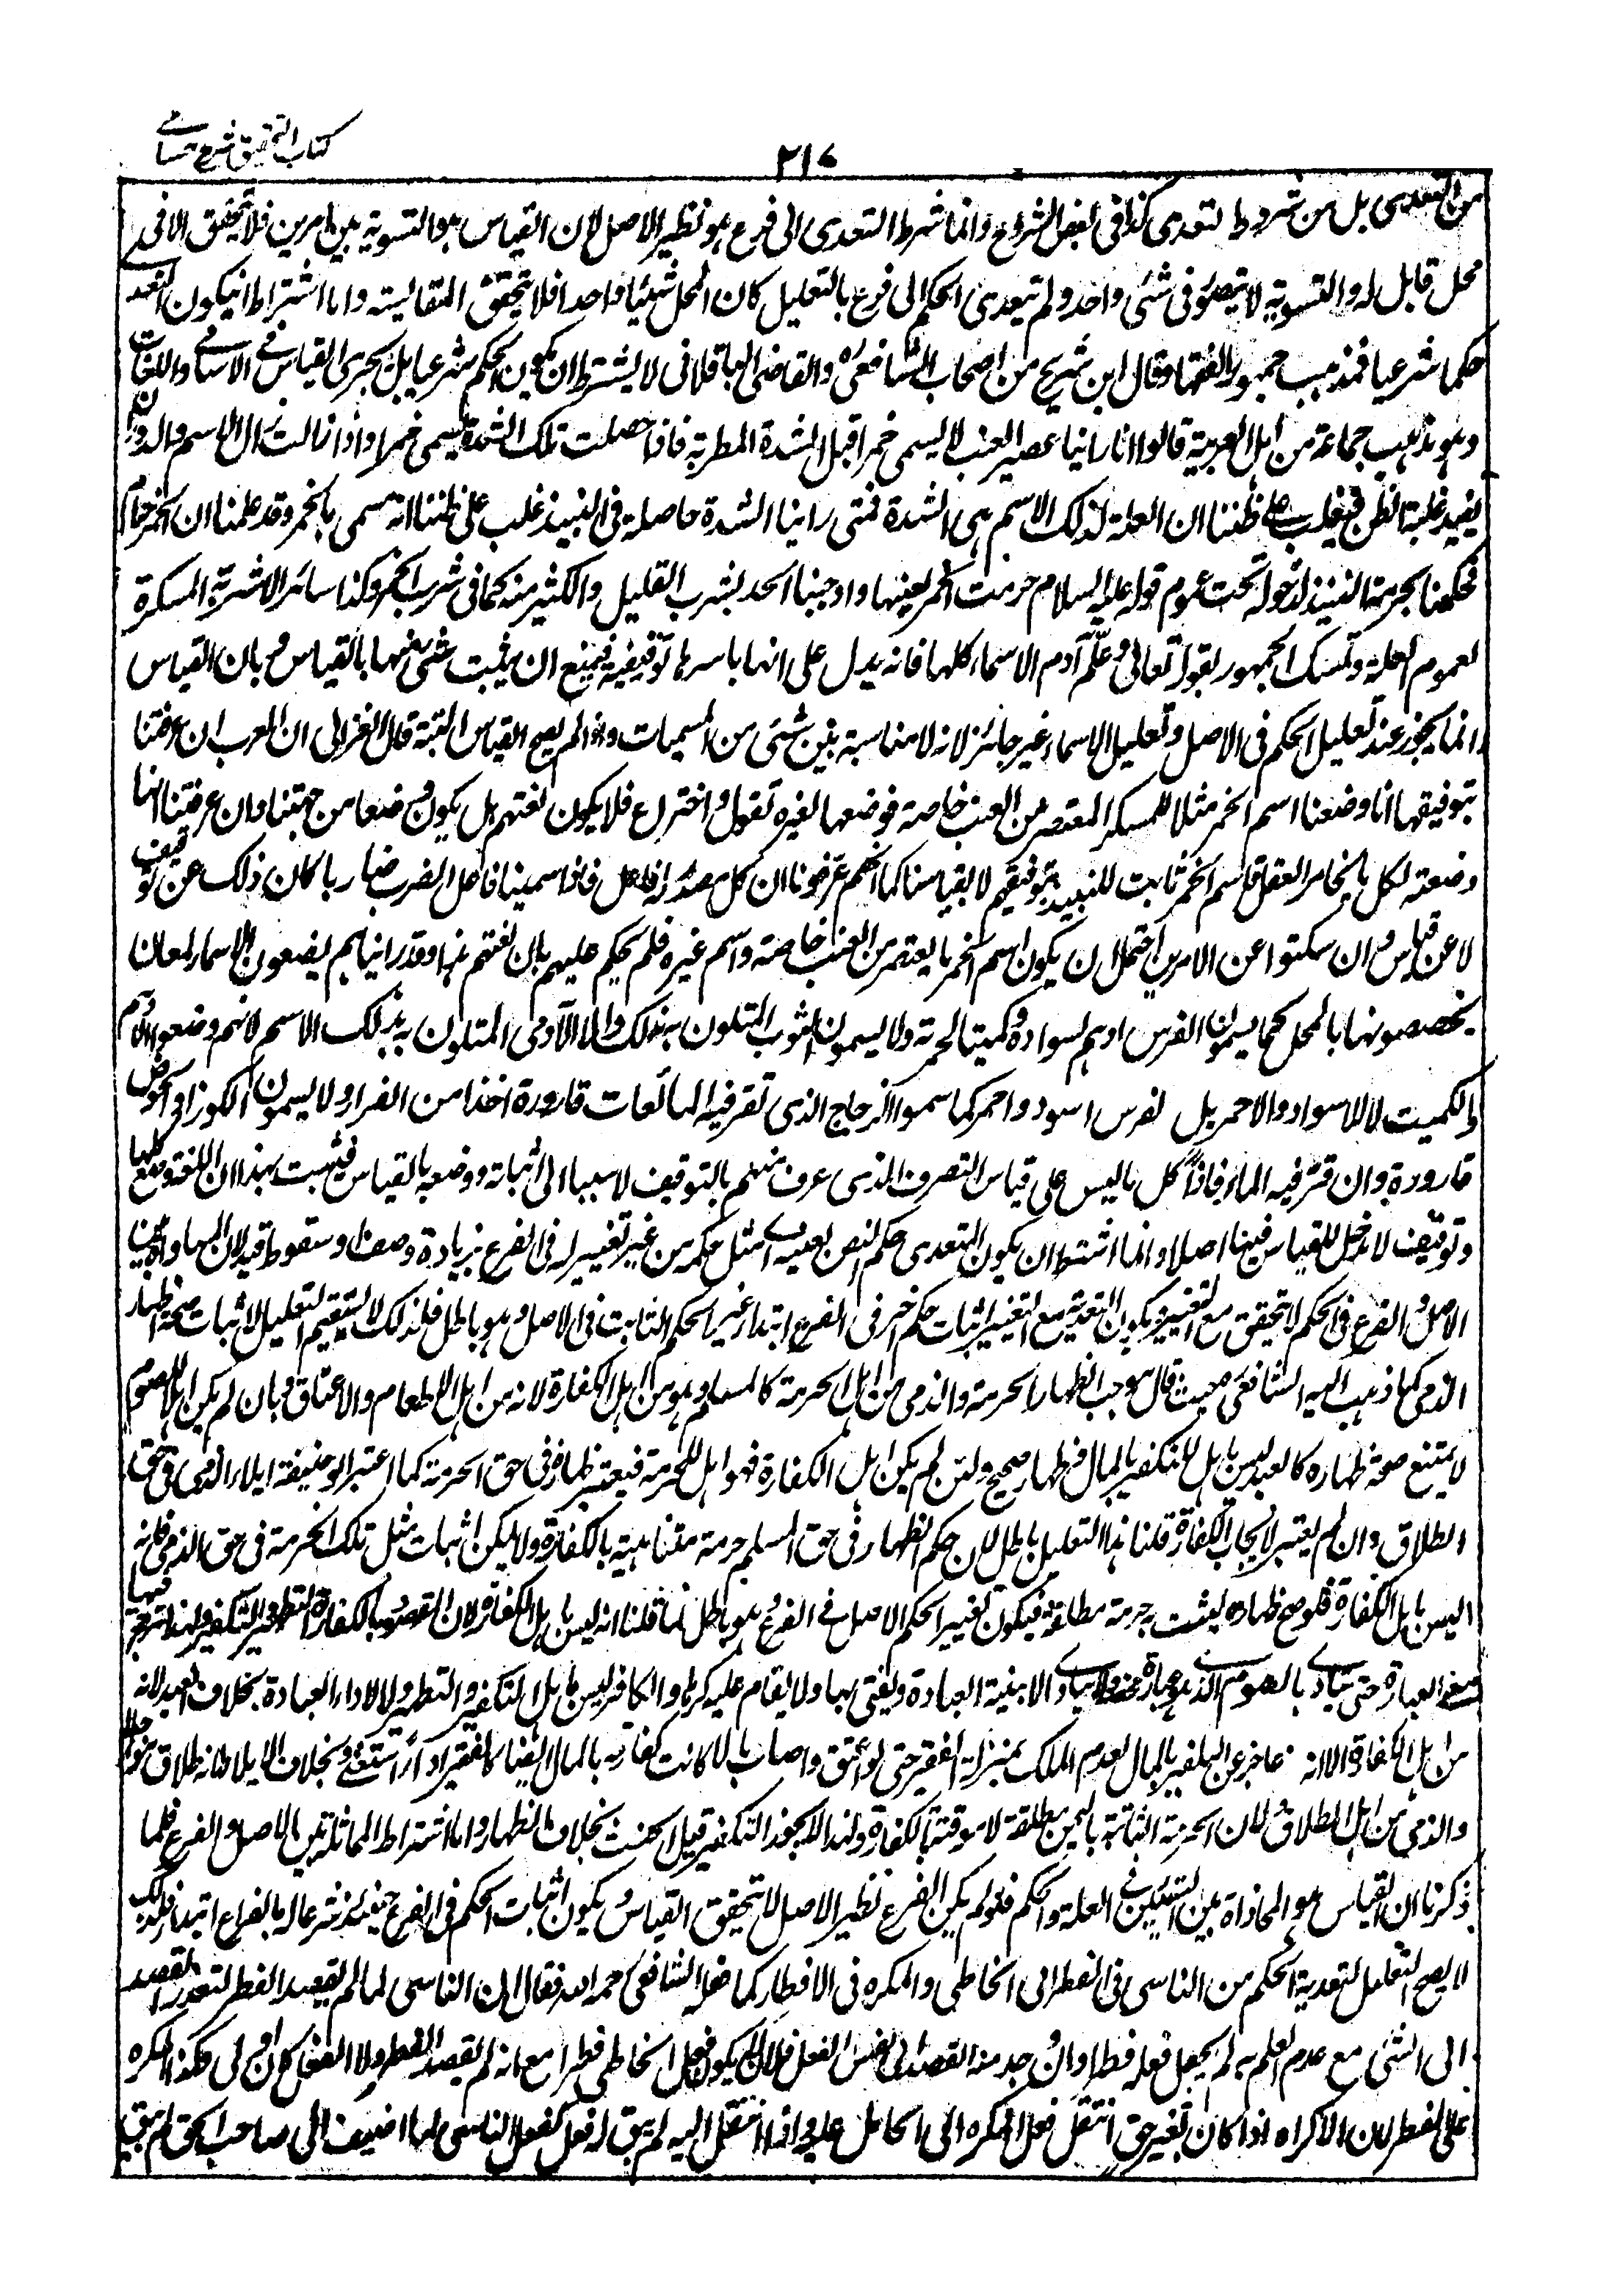 كتاب التحقيق شرح حسامي
٢١٧
من التعدى بل من شروط التعدى كذا فى بعض الشروح وانما شرط التعدى الى فرع هو نظير الاصل لان القياس هو التسوية بين امرين فلا يتحقق الا فى
محل قابل له والتسوية لا يتصور فى شئ واحد ولو لم يتعدى الحكم الى فرع بالتعليل كان المحل شيئا واحدا فلا يتحقق المقايسة واما اشتراط ان يكون المتعدى
حكما شرعيا فمذهب جمهور الفقهاء وقال ابن شريح من اصحاب الشافعى والقاضى الباقلانى لا يشترط ان يكون الحكم شرعيا بل يجرى القياس فى الاسامى واللغات
وهو مذهب جماعة من اهل العربية قالوا انا راينا عصير العنب لا يسمى خمرا قبل الشدة المطربة فاذا حصلت تلك الشدة يسمى خمرا واذا زالت زال الاسم والدوران
يفيد غلبة الظن فيغلب على ظننا ان العلة لذلك الاسم هى الشدة فمتى راينا الشدة حاصلة فى النبيذ غلب على ظننا انه مسمى بالخمر وقد علمنا ان الخمر حرام
فحكمنا بحرمة النبيذ لدخوله تحت عموم قوله عليه السلام حرمت الخمر لعينها واوجبنا الحد بشرب القليل والكثير منه كما فى شرب الخمر وكذا سائر الاشربة المسكرة
لعموم العلة وتمسك الجمهور بقوله تعالى وعلم آدم الاسماء كلها فانه يدل على انها باسرها توقيفية فيمتنع ان يثبت شئ منها بالقياس وبان القياس
انما يجوز عند تعليل الحكم فى الاصل وتعليل الاسماء غير جائز لانه لا مناسبة بين شئ من المسميات واذا لم يصح القياس البتة قال الغزالى ان العرب ان عرفتنا
بتوقيفها انا وضعنا اسم الخمر مثلا للمسكر المعتصر من العنب خاصة فوضعها لغيره تقول واختراع فلا يكون لغتهم بل يكون وضعا من جهتنا وان عرفتنا انها
وضعته لكل ما يخامر العقل فاسم الخمر ثابت للنبيذ بتوقيفهم لا بقياسنا كما انهم عرفونا ان كل مصدر له فاعل فاذا سمينا فاعل الضرب ضاربا كان ذلك عن توقيف
لا عن قياس وان سكتوا عن الامرين احتمل ان يكون اسم الخمر ما يعتصر من العنب خاصة واسم غيره فلم يحكم عليهم بان لغتهم هذا وقد رايناهم يضعون الاسماء لمعان
يخصصونها بالمحل كما يسمون الفرس ادهم لسواده وكميتا لحمرته ولا يسمون الثوب المتلون بذلك ولا الآدمى المتلون به بذلك الاسم لانهم وضعوا الادهم
والكميت لا للاسود والاحمر بل لفرس اسود واحمر كما سموا الزجاج الذى تقر فيه المائعات قارورة اخذا من القرار ولا يسمون الكوز او الحوض
قارورة وان قر فيه الماء فاذا كل ما ليس على قياس التصريف الذى عرف منهم بالتوقيف لا سبيل الى اثباته ووضعه بالقياس فيثبت بهذا ان اللغة وضع كلها
وتوقيف لا مدخل للقياس فيها اصلا وانما اشترط ان يكون المتعدى حكم النص بعينه اى مثل حكمه من غير تغيير له فى الفرع بزيادة وصف او سقوط قيد لان المساواة بين
الاصل والفرع فى الحكم لا تتحقق مع التغيير ويكون التعدية مع التغيير اثبات حكم آخر فى الفرع ابتداء غير الحكم الثابت فى الاصل وهو باطل فلذلك لا يستقيم التعليل لاثبات صحة ظهار
الذمى كما ذهب اليه الشافعى حيث قال موجب الظهار الحرمة والذمى من اهل الحرمة كالمسلم وهو من اهل الكفارة لانه من اهل الاطعام والاعتاق وبان لم يكن اهلا للصوم
لا يمتنع صحة ظهاره كالعبد ليس باهل للتكفير بالمال وظهاره صحيح ولئن لم يكن اهل الكفارة فهو اهل للحرمة فيعتبر ظهاره فى حق الحرمة كما اعتبر ابو حنيفة ايلاء الذمى فى حق
الطلاق وان لم يعتبر لايجاب الكفارة قلنا هذا التعليل باطل لان حكم الظهار فى حق المسلم حرمة متناهية بالكفارة ولا يمكن اثبات مثل تلك الحرمة فى حق الذمى فانه
ليس باهل الكفارة فلو صح ظهاره لثبت به حرمة مطلقة فيكون تغييرا لحكم الاصل فى الفرع وهو باطل انما قلنا انه ليس باهل للكفارة لان المقصود بالكفارة التطهير والتكفير ولهذا ترجح فيها
معنى العبادة حتى يتادى بالصوم الذى هو عبادة محضة ولا يتادى الا بنية العبادة ويفتى بها ولا يقام عليه كرها والكافر ليس باهل للتكفير والتطهير ولا لاداء العبادة بخلاف العبد لانه
من اهل الكفارة الا انه عاجز عن التكفير بالمال لعدم الملك بمنزلة الفقير حتى لو اعتق واصاب مالا كانت كفارته بالمال ايضا كالفقير اذا استغنى وبخلاف الايلاء فانه طلاق مؤجل
والذمى من اهل الطلاق ولان الحرمة الثابتة باليمين مطلقة لا موقتة بالكفارة ولهذا لا يجوز التكفير قبل الحنث بخلاف الظهار واما اشتراط المماثلة بين الاصل والفرع فلما
ذكرنا ان القياس هو المحاذاة بين الشيئين فى العلة والحكم فلو لم يكن الفرع نظير الاصل لا يتحقق القياس ويكون اثبات الحكم فى الفرع حينئذ شرعا له بالفرع ابتداء فلذلك
لا يصح التعليل لتعدية الحكم من الناسى فى الفطر الى الخاطى والمكره فى الافطار كما فعله الشافعى رحمه الله فقال ان الناسى لما لم يقصد الفطر لتعذر القصد
الى الشئ مع عدم العلم به لم يجعل فعله فطرا وان وجد منه القصد الى نفس الفعل فلان لا يكون فعل الخاطى فطرا مع انه لم يقصد الفطر ولا الفعل كان اولى وكذا المكره
على الفطر لان الاكراه اذا كان بغير حق انتقل فعل المكره الى الحامل عليه واذا انتقل اليه لم يبق له فعل كفعل الناسى لما اضيف الى صاحب الحق لم يبق